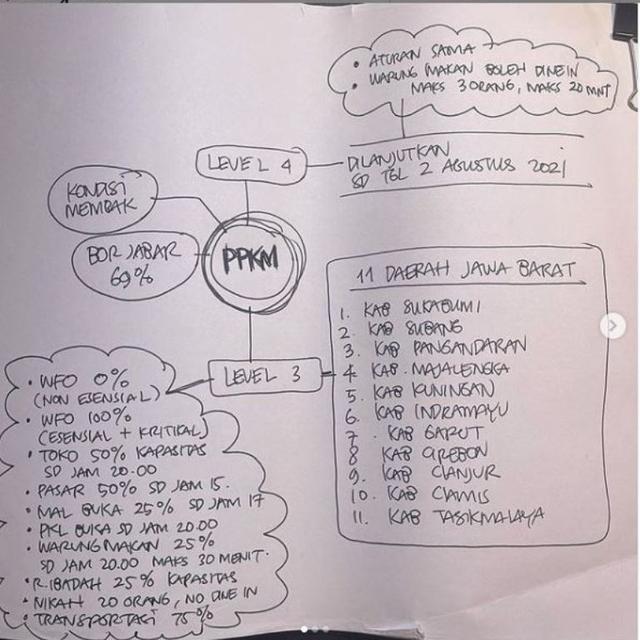 • ATURAN SAMA
• WARUNG MAKAN BOLEH DINE IN
MAKS 3 ORANG, MAKS 20 MNT
LEVEL 4
DILANJUTKAN
SD TGL 2 AGUSTUS 2021
KONDISI
MEMBAIK
BOR JABAR
69%
PPKM
11 DAERAH JAWA BARAT
1. KAB SUKABUMI
2. KAB SUBANG
3. KAB PANGANDARAN
4. KAB. MAJALENGKA
5. KAB KUNINGAN
6. KAB INDRAMAYU
7. KAB GARUT
8 KAB CIREBON
9. KAB CIANJUR
10. KAB CIAMIS
11. KAB TASIKMALAYA
LEVEL 3
• WFO 0%
(NON ESENSIAL)
• WFO 100%
(ESENSIAL + KRITIKAL)
• TOKO 50% KAPASITAS
SD JAM 20.00
• PASAR 50% SD JAM 15.
• MAL BUKA 25% SD JAM 17
• PKL BUKA SD JAM 20.00
• WARUNG MAKAN 25%
SD JAM 20.00 MAKS 30 MENIT.
• R. IBADAH 25% KAPASITAS
• NIKAH 20 ORANG, NO DINE IN
• TRANSPORTASI 75%